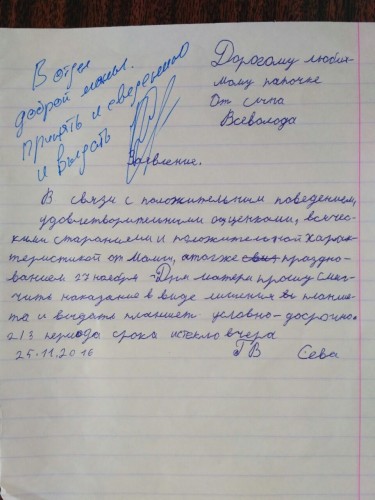 В отдел
доброй мамы.
Принять к сведению
и выдать
Дорогому люби-
мому папочке
От сына
Всеволода
Заявление.
В связи с положительным поведением,
удовлетворительными оценками, всячес-
кими стараниями и положительной харак-
теристикой от мамы, а также праздно-
ванием 27 ноября Дня матери прошу смяг-
чить наказание в виде лишения планше-
та и выдать планшет условно-досрочно.
2/3 периода срока истекло вчера
25.11.2016 ГВ Сева